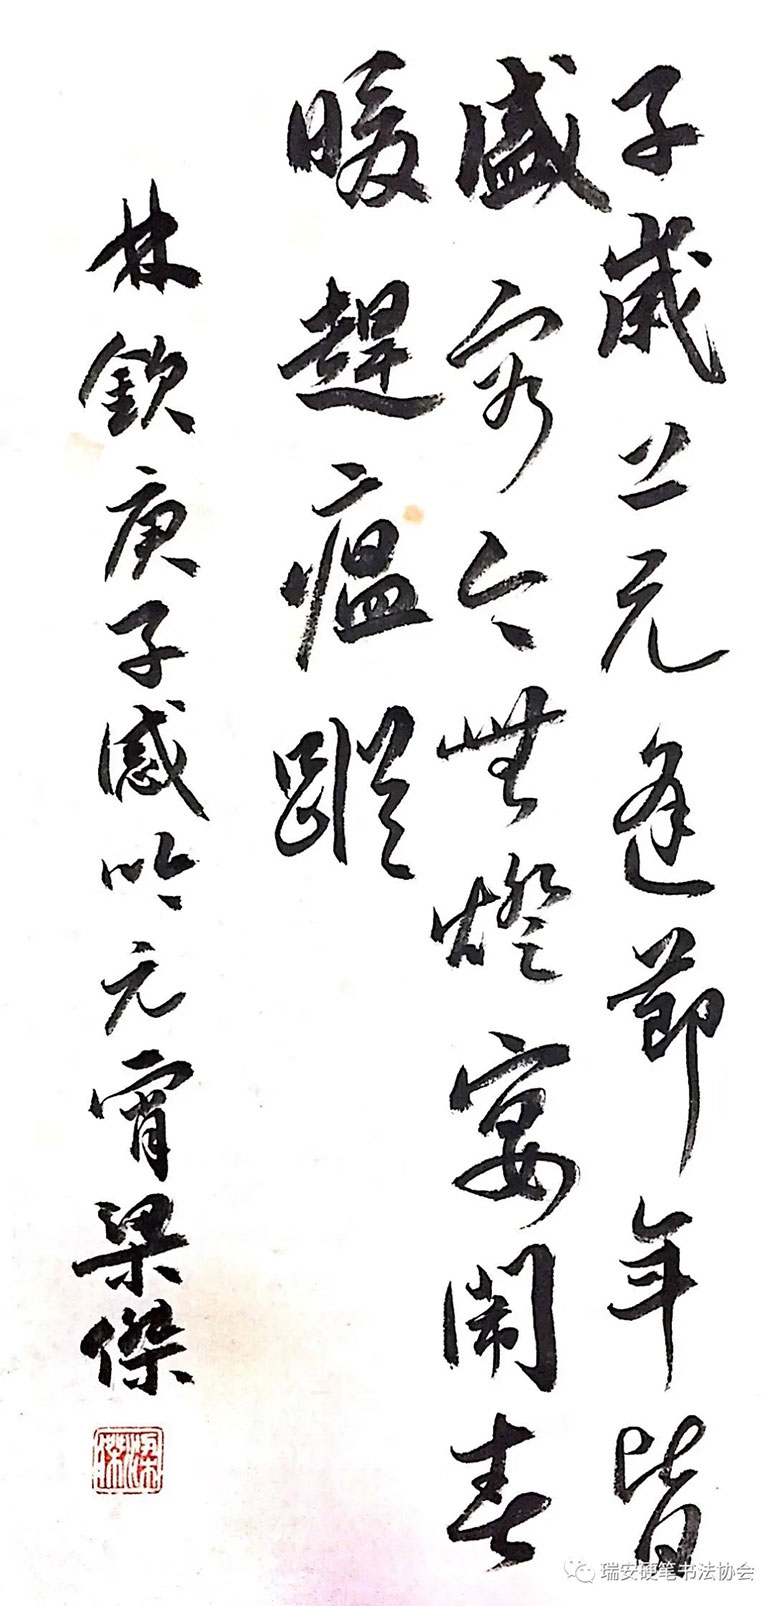 子歲上元逢節年皆
盛容今無燈宴鬧春
暖趕瘟蹤
林欽庚子感吟元宵梁傑
梁傑
瑞安硬笔书法协会